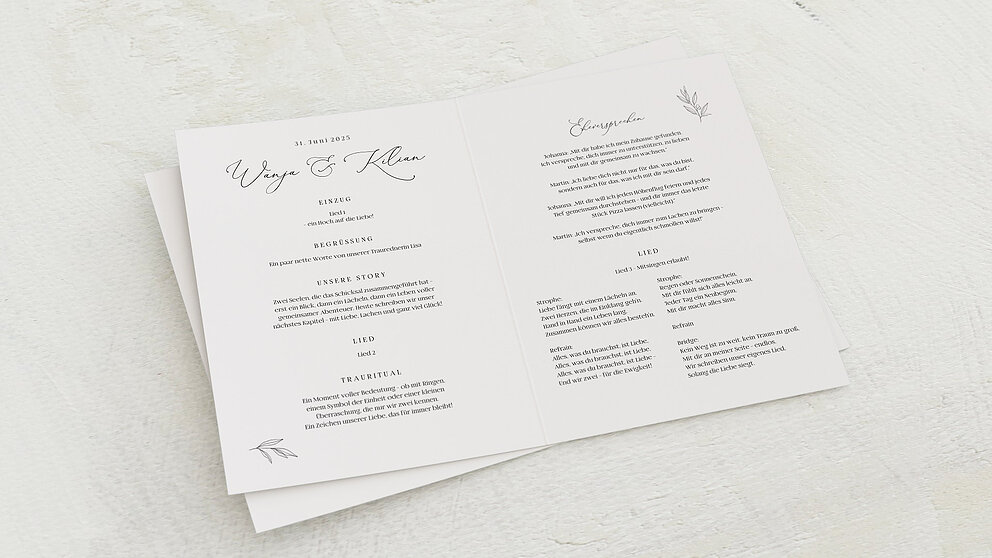 31. Juni 2025
Wanja & Kilian
EINZUG
Lied 1
- ein Hoch auf die Liebe!
BEGRÜSSUNG
Ein paar nette Worte von unserer Traurednerin Lisa
UNSERE STORY
Zwei Seelen, die das Schicksal zusammengeführt hat –
erst ein Blick, dann ein Lächeln, dann ein Leben voller
gemeinsamer Abenteuer. Heute schreiben wir unser
nächstes Kapitel – mit Liebe, Lachen und ganz viel Glück!
LIED
Lied 2
TRAURITUAL
Ein Moment voller Bedeutung – ob mit Ringen,
einem Symbol der Einheit oder einer kleinen
Überraschung, die nur wir zwei kennen.
Ein Zeichen unserer Liebe, das für immer bleibt!
Eheversprechen
Johanna: „Mit dir habe ich mein Zuhause gefunden
Ich verspreche, dich immer zu unterstützen, zu lieben
und mit dir gemeinsam zu wachsen.“
Martin: „Ich liebe dich nicht nur für das, was du bist,
sondern auch für das, was ich mit dir sein darf.“
Johanna: „Mit dir will ich jeden Höhenflug feiern und jedes
Tief gemeinsam durchstehen – und dir immer das letzte
Stück Pizza lassen (vielleicht)“
Martin: „Ich verspreche, dich immer zum Lachen zu bringen –
selbst wenn du eigentlich schmollen willst!“
LIED
Lied 3 – Mitsingen erlaubt!
Strophe:
Liebe fängt mit einem Lächeln an,
Zwei Herzen, die im Einklang geh'n.
Hand in Hand ein Leben lang,
Zusammen können wir alles besteh'n.
Refrain:
Alles, was du brauchst, ist Liebe,
Alles, was du brauchst, ist Liebe,
Alles, was du brauchst, ist Liebe –
Und wir zwei – für die Ewigkeit!
Strophe:
Regen oder Sonnenschein,
Mit dir fühlt sich alles leicht an.
Jeder Tag ein Neubeginn,
Mit dir macht alles Sinn.
Refrain
Bridge:
Kein Weg ist zu weit, kein Traum zu groß,
Mit dir an meiner Seite – endlos.
Wir schreiben unser eigenes Lied,
Solang die Liebe siegt.